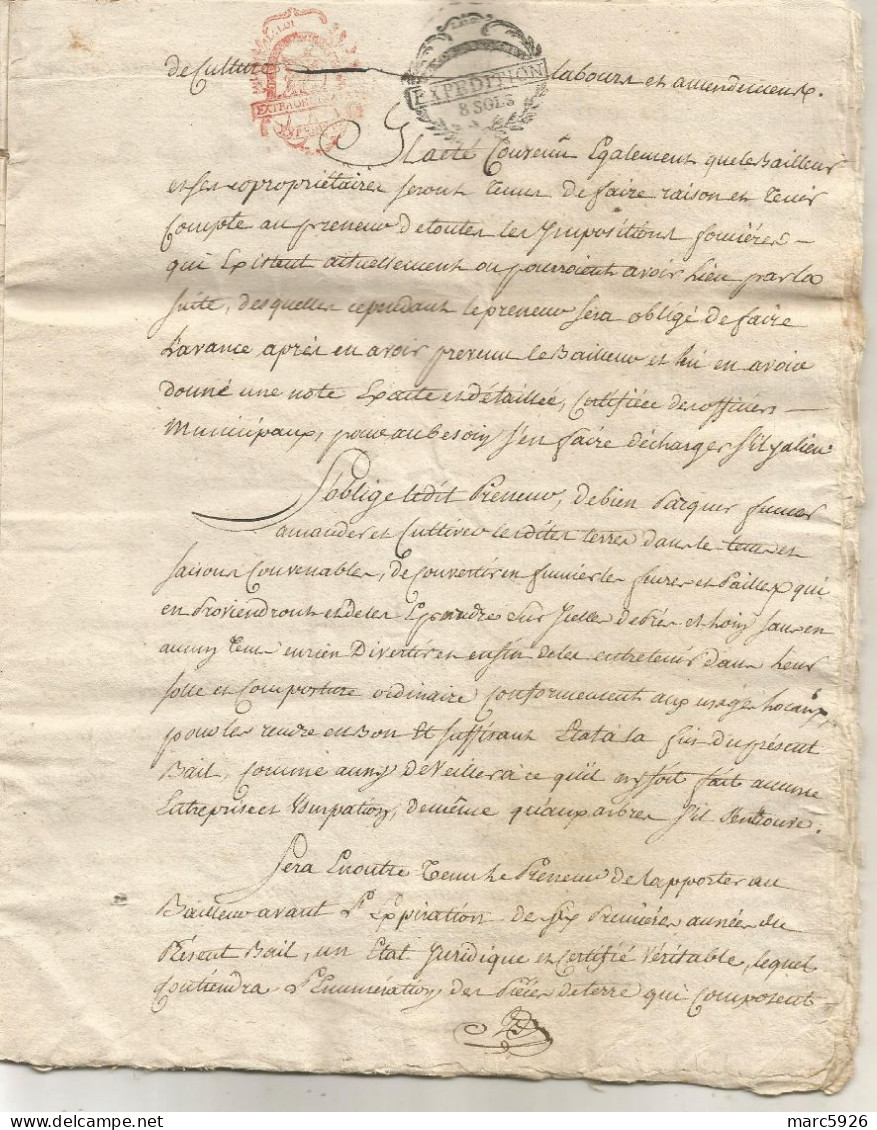 LA LOI
EXTRAORD
EXPEDITION
8 SOLS
de Culture labours et amendements.
Il a été Convenu Egalement que le Bailleur
et ses copropriétaires seront tenus de faire raison et tenir
Compte au preneur de toutes les Impositions foncières —
qui Existent actuellement ou pourroient avoir lieu par la
suite, desquelles cependant le preneur sera obligé de faire
L'avance après en avoir prevenu le Bailleur et lui en avoir
donné une note Exacte et détaillée, Certifiée des officiers —
Municipaux, pour au besoin s'en faire décharger s'il y a lieu
S'oblige ledit Preneur, de bien Parquer fumer
amander et Cultiver lesdites terres dans le tems et
saisons Convenables, de Convertir en fumier les fures et Pailles qui
en Proviendront et de les Epandre sur Icelles de Prés et Loin sans en
aucun tems en rien Divertir et enfin de les entretenir dans leur
solle et Composture ordinaire Conformement aux usages Locaux,
pour les rendre en Bon Et suffisant Etat à la fin du présent
Bail, Comme aussy de Veiller à ce qu'il n'y soit fait aucune
Entreprise et Usurpation, de même qu'aux arbres s'il s'en trouve.
Sera Enoutre Tenu le Preneur de rapporter au
Bailleur avant l'Expiration des six Premieres années du
Présent Bail, un Etat Juridique et Certifié Véritable, lequel
Contiendra l'Enumération des Pièces de terre qui Composent —
marc5926